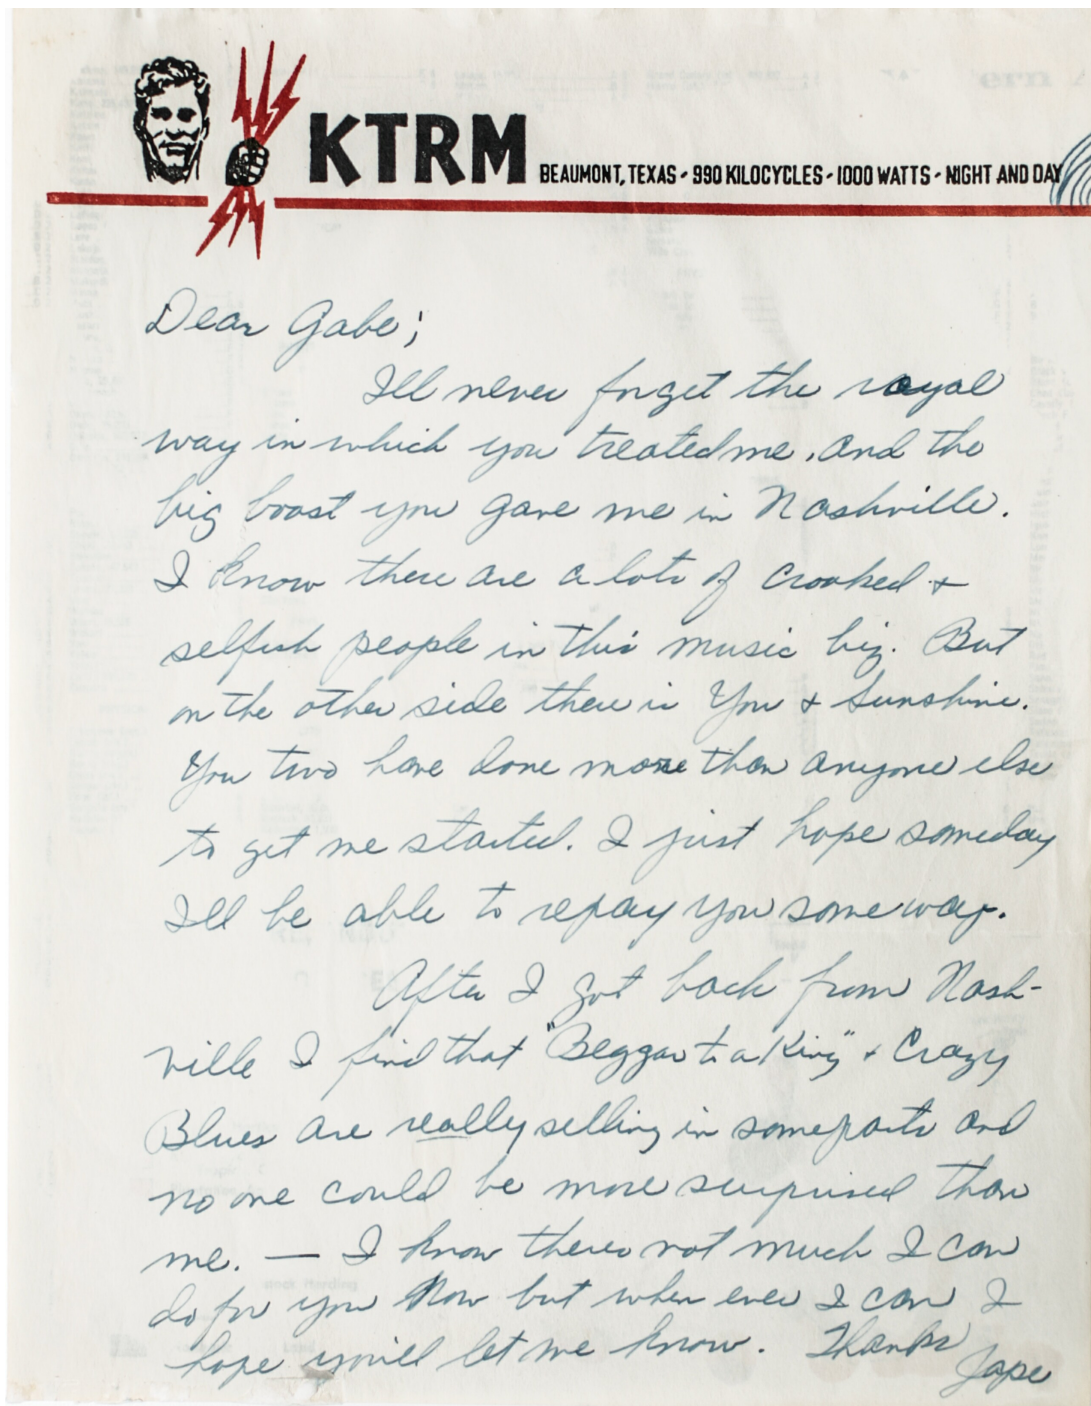 KTRM
BEAUMONT, TEXAS - 990 KILOCYCLES - 1000 WATTS - NIGHT AND DAY
Dear Gabe;
I'll never forget the royal
way in which you treated me, and the
big boost you gave me in Nashville.
I know there are a lots of crooked +
selfish people in this music biz. But
on the other side there is You + Sunshine.
You two have done more than anyone else
to get me started. I just hope someday
I'll be able to repay you some way.
After I got back from Nash-
ville I find that "Beggar to a King" + Crazy
Blues are really selling in some parts and
no one could be more surprised than
me. — I know theres not much I can
do for you Now but when ever I can I
hope you'll let me know. Thanks
Jape